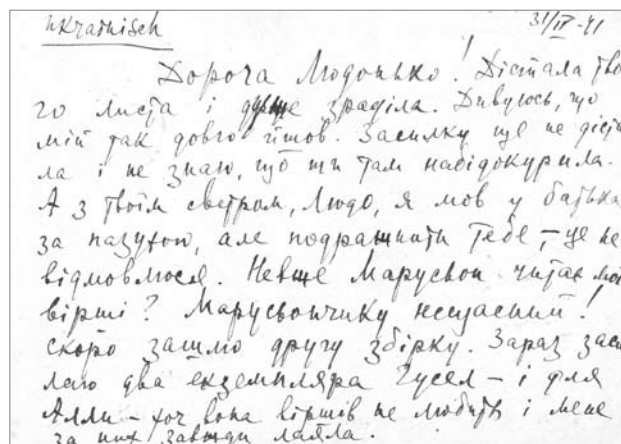 ukrainisch
31/III-41
Дорога Людонько! Дістала тво-
го листа і дуже зраділа. Дивуюсь, що
мій так довго йшов. Засилку ще не діста
ла і не знаю, що ти там набідокурила.
А з твоїм светром, Людо, я мов у батька
за пазухою, але подразнити тебе, – це не
відмовлюся. Невже Марусвои читає мої
вірші? Марусьончику нещасний!
скоро зашлю другу збірку. Зараз заси
лаю два екземпляра Гусел – і для
Алли – хоч вона віршів не любить і мене
за них завжди лаяла.